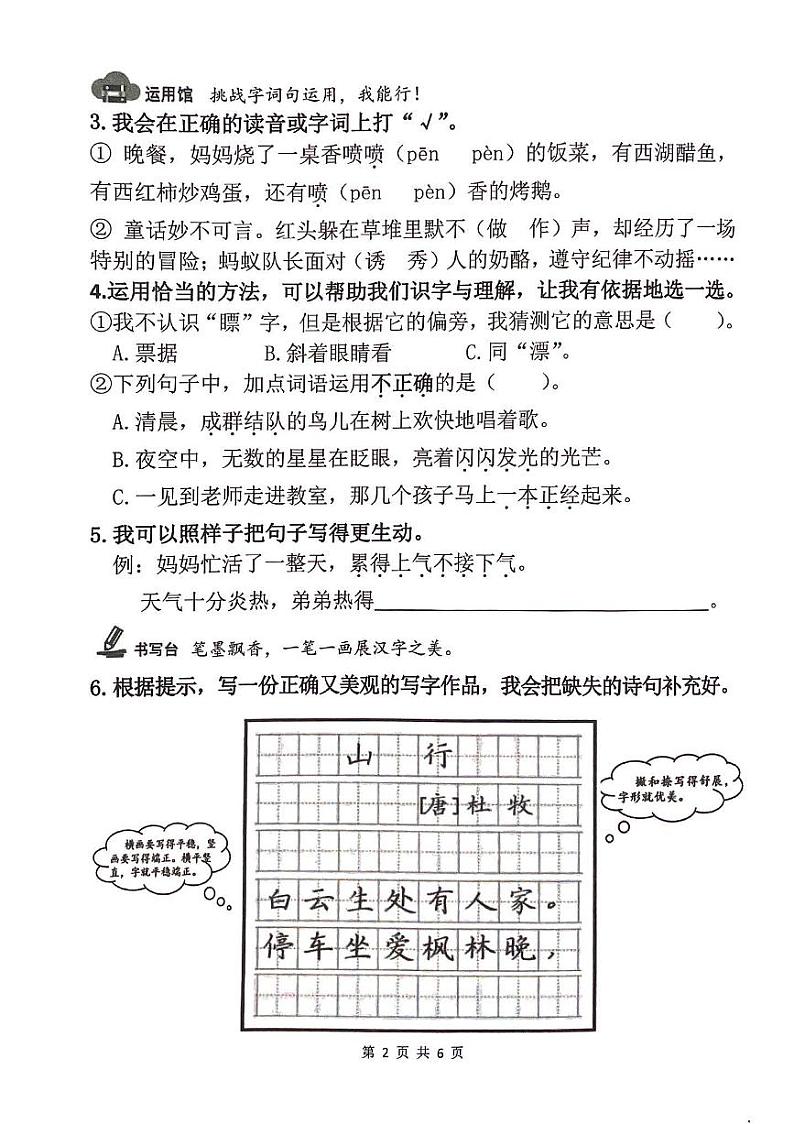 运用馆 挑战字词句运用，我能行！
3. 我会在正确的读音或字词上打“√”。
① 晚餐，妈妈烧了一桌香喷喷（pēn pèn）的饭菜，有西湖醋鱼，
有西红柿炒鸡蛋，还有喷（pēn pèn）香的烤鹅。
② 童话妙不可言。红头躲在草堆里默不（做 作）声，却经历了一场
特别的冒险；蚂蚁队长面对（诱 秀）人的奶酪，遵守纪律不动摇……
4.运用恰当的方法，可以帮助我们识字与理解，让我有依据地选一选。
①我不认识“瞟”字，但是根据它的偏旁，我猜测它的意思是（ ）。
A. 票据 B. 斜着眼睛看 C. 同“漂”。
②下列句子中，加点词语运用不正确的是（ ）。
A. 清晨，成群结队的鸟儿在树上欢快地唱着歌。
B. 夜空中，无数的星星在眨眼，亮着闪闪发光的光芒。
C. 一见到老师走进教室，那几个孩子马上一本正经起来。
5. 我可以照样子把句子写得更生动。
例：妈妈忙活了一整天，累得上气不接下气。
天气十分炎热，弟弟热得______________________________。
书写台 笔墨飘香，一笔一画展汉字之美。
6. 根据提示，写一份正确又美观的写字作品，我会把缺失的诗句补充好。
山 行
[唐]杜 牧
撇和捺写得舒展，
字形就优美。
横画要写得平稳，竖
画要写得端正。横平竖
直，字就平稳端正。
白云生处有人家。
停车坐爱枫林晚，
第 2 页 共 6 页